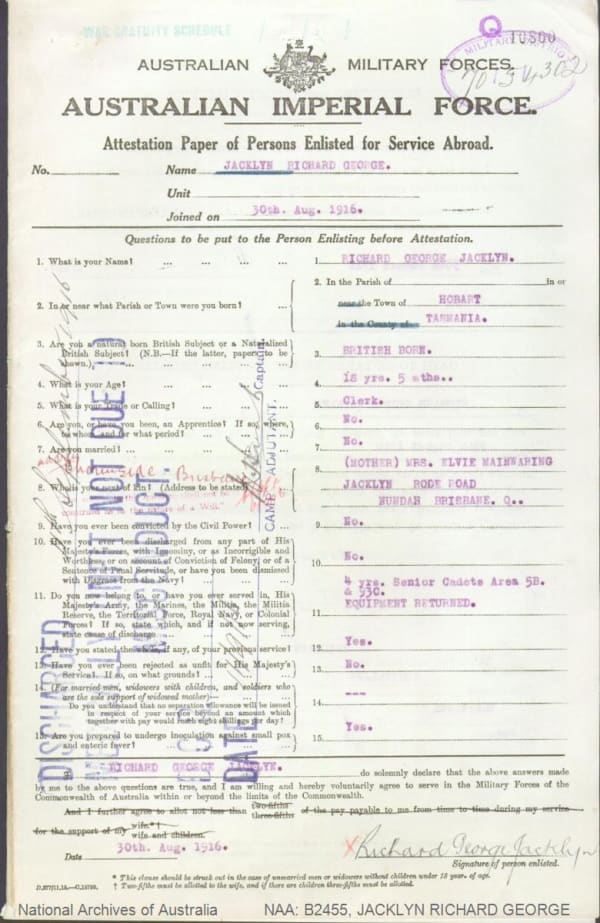 WAR GRATUITY SCHEDULE
Q 10800
MILITARY DISTRICT
AUSTRALIAN MILITARY FORCES.
AUSTRALIAN IMPERIAL FORCE.
Attestation Paper of Persons Enlisted for Service Abroad.
No. Name JACKLYN RICHARD GEORGE.
Unit
Joined on 30th. Aug. 1916.
Questions to be put to the Person Enlisting before Attestation.
1. What is your Name? ... ... ... ...
1 RICHARD GEORGE JACKLYN.
2. In or near what Parish or Town were you born? ...
2. In the Parish of in or
near the Town of HOBART
in the County of TASMANIA.
3. Are you a natural born British Subject or a Naturalized
British Subject? (N.B.—If the latter, papers to be
shown.)
3. BRITISH BORN.
4. What is your Age? ... ... ... ...
4. 18 yrs. 5 mths..
5. What is your Trade or Calling? ... ... ...
5. Clerk.
6. Are you, or have you been, an Apprentice? If so, where,
to whom, and for what period?
6. No.
7. Are you married? ... ... ... ...
7. No.
8. Who is your next of kin? (Address to be stated)
8 (MOTHER) MRS. ELVIE MAINWARING
JACKLYN RODE ROAD
NUNDAH BRISBANE. Q..
Brisbane
of a Will."
9. Have you ever been convicted by the Civil Power? ...
9. No.
10. Have you ever been discharged from any part of His
Majesty's Forces, with Ignominy, or as Incorrigible and
Worthless, or on account of Conviction of Felony, or of a
Sentence of Penal Servitude, or have you been dismissed
with Disgrace from the Navy?
10. No.
11. Do you now belong to, or have you ever served in, His
Majesty's Army, the Marines, the Militia, the Militia
Reserve, the Territorial Force, Royal Navy, or Colonial
Forces? If so, state which, and if not now serving,
state cause of discharge
11 4 yrs. Senior Cadets Area 5B.
& 93C.
EQUIPMENT RETURNED.
12. Have you stated the whole, if any, of your previous service?
12. Yes.
13. Have you ever been rejected as unfit for His Majesty's
Service? If so, on what grounds?
13. No.
14. (For married men, widowers with children, and soldiers who
are the sole support of widowed mother)—
Do you understand that no separation allowance will be issued
in respect of your service beyond an amount which
together with pay would reach eight shillings per day?
14. ---
15. Are you prepared to undergo inoculation against small pox
and enteric fever?
15. Yes.
DISCHARGED
NOT DUE TO
MISCONDUCT.
DATE
Captain.
CAMP ADJUTANT.
I, RICHARD GEORGE JACKLYN. do solemnly declare that the above answers made
by me to the above questions are true, and I am willing and hereby voluntarily agree to serve in the Military Forces of the
Commonwealth of Australia within or beyond the limits of the Commonwealth.
And I further agree to allot not less than two-fifths three-fifths of the pay payable to me from time to time during my service
for the support of my wife.*† wife and children.
Date 30th Aug. 1916.
X Richard George Jacklyn
Signature of person enlisted.
* This clause should be struck out in the case of unmarried men or widowers without children under 18 years of age.
† Two-fifths must be allotted to the wife, and if there are children three-fifths must be allotted.
National Archives of Australia NAA: B2455, JACKLYN RICHARD GEORGE